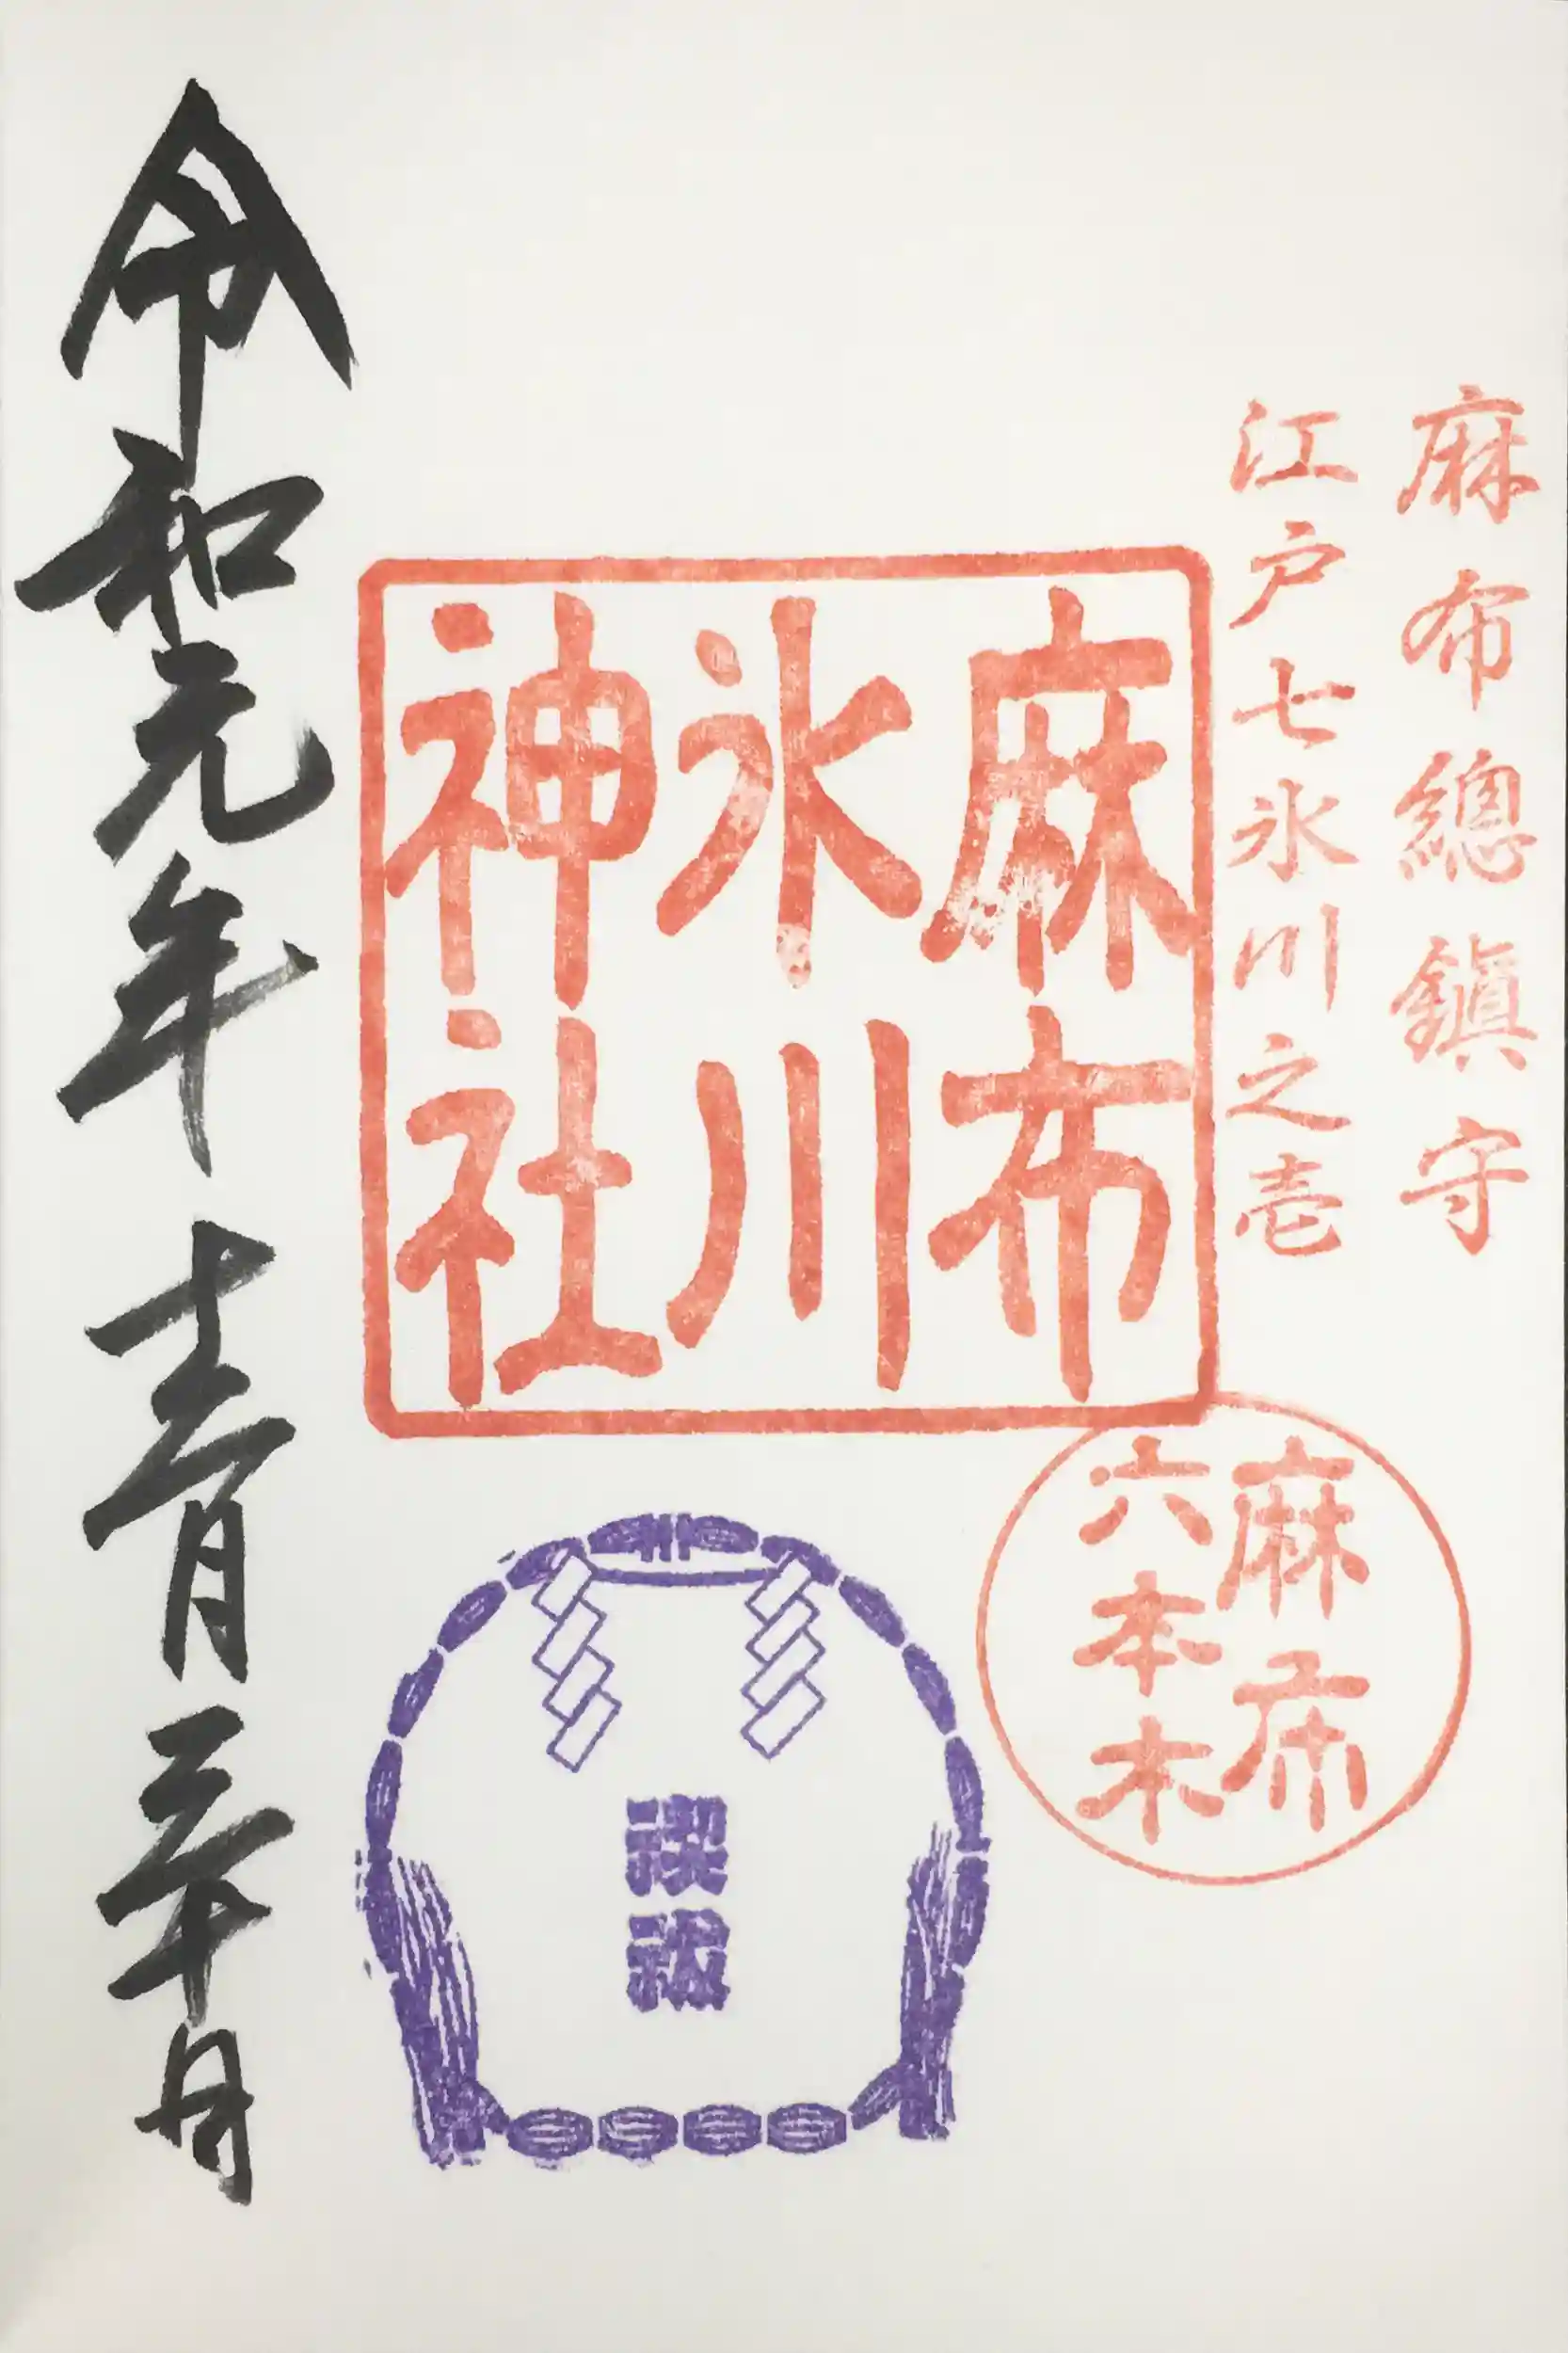 麻布總鎮守
江戸七氷川之壱
麻布
氷川
神社
麻布
六本木
禊祓
令和元年 十二月三十日